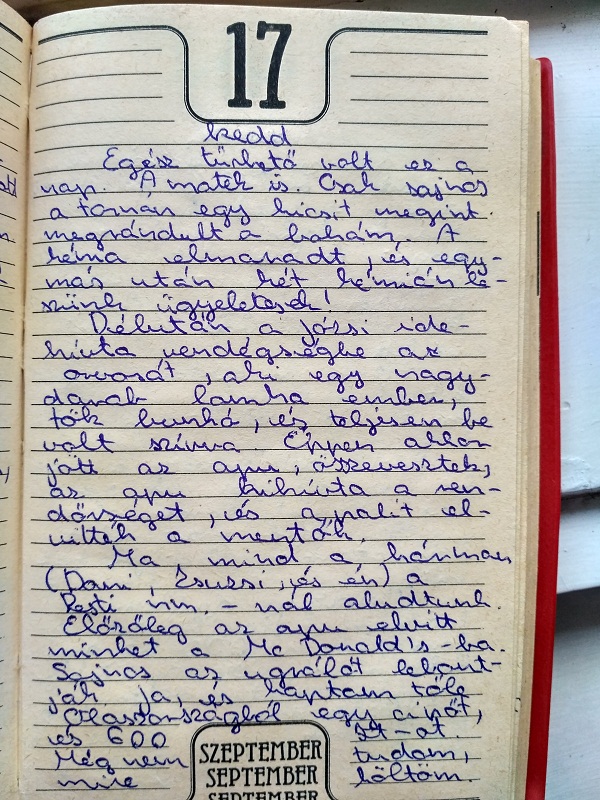 17
kedd
Egész tűrhető volt ez a
nap. A matek is. Csak sajnos
a tornán egy kicsit megint
megrándult a bokám. A
kémia elmaradt, és egy-
más után két kémián le-
szünk ügyeletesek!
Délután a józsi ide-
hívta vendégségbe az
orvosát, aki egy nagy-
darab lomha ember,
tök bunkó, és teljesen be
volt szívva Éppen akkor
jött az apu, összevesztek,
az apu kihívta a ren-
dőrséget, és a palit el-
vitték a mentők.
Ma mind a hárman
(Dani, Zsuzsi, és én) a
Pesti nm. - nál aludtunk.
Előzőleg az apu elvitt
minket a Mc Donald's-ba.
Sajnos az ugrálót lebont-
ják ja, és kaptam tőle
Olaszországból egy cipőt,
és 600 Ft-ot.
Még nem tudom,
mire költöm.
SZEPTEMBER
SZEPTEMBER
SZEPTEMBER